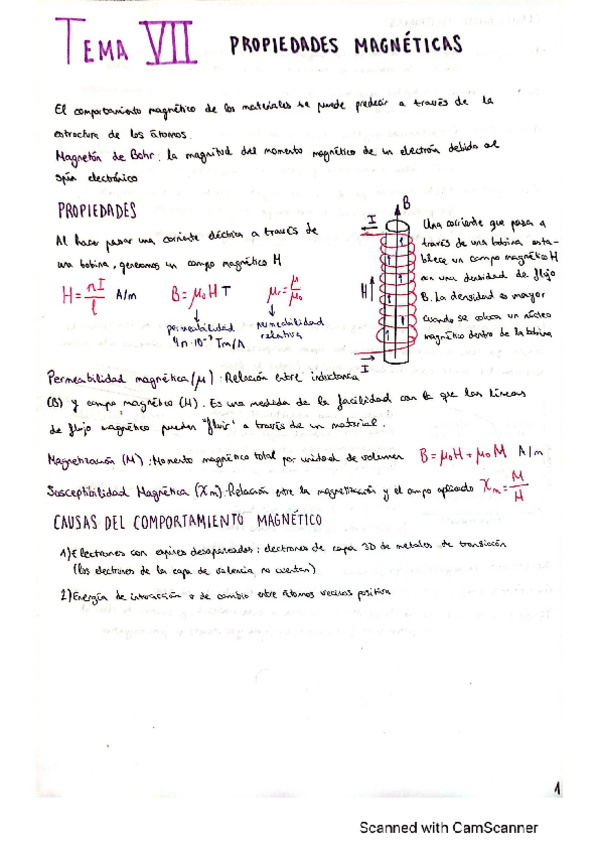 TEMA VII PROPIEDADES MAGNÉTICAS
El comportamiento magnético de los materiales se puede predecir a través de la
estructura de los átomos.
Magnetón de Bohr: la magnitud del momento magnético de un electrón debido al
spin electrónico
PROPIEDADES
Al hacer pasar una corriente eléctrica a través de
una bobina, generamos un campo magnético H
H = nI/l A/m B = μ₀H T μr = μ/μ₀
permeabilidad
4π·10⁻⁷ Tm/A
permeabilidad
relativa
B
I
H
I
Una corriente que pasa a
través de una bobina esta-
blece un campo magnético H
con una densidad de flujo
B. La densidad es mayor
cuando se coloca un núcleo
magnético dentro de la bobina
Permeabilidad magnética (μ): Relación entre inductancia
(B) y campo magnético (H). Es una medida de la facilidad con la que las líneas
de flujo magnético pueden "fluir" a través de un material.
Magnetización (M): Momento magnético total por unidad de volumen B = μ₀H + μ₀M A/m
Susceptibilidad Magnética (Xm): Relación entre la magnetización y el campo aplicado Xm = M/H
CAUSAS DEL COMPORTAMIENTO MAGNÉTICO
1) Electrones con espines desapareados: electrones de capa 3D de metales de transición
(los electrones de la capa de valencia no cuentan)
2) Energía de interacción o de cambio entre átomos vecinos positiva
1
Scanned with CamScanner